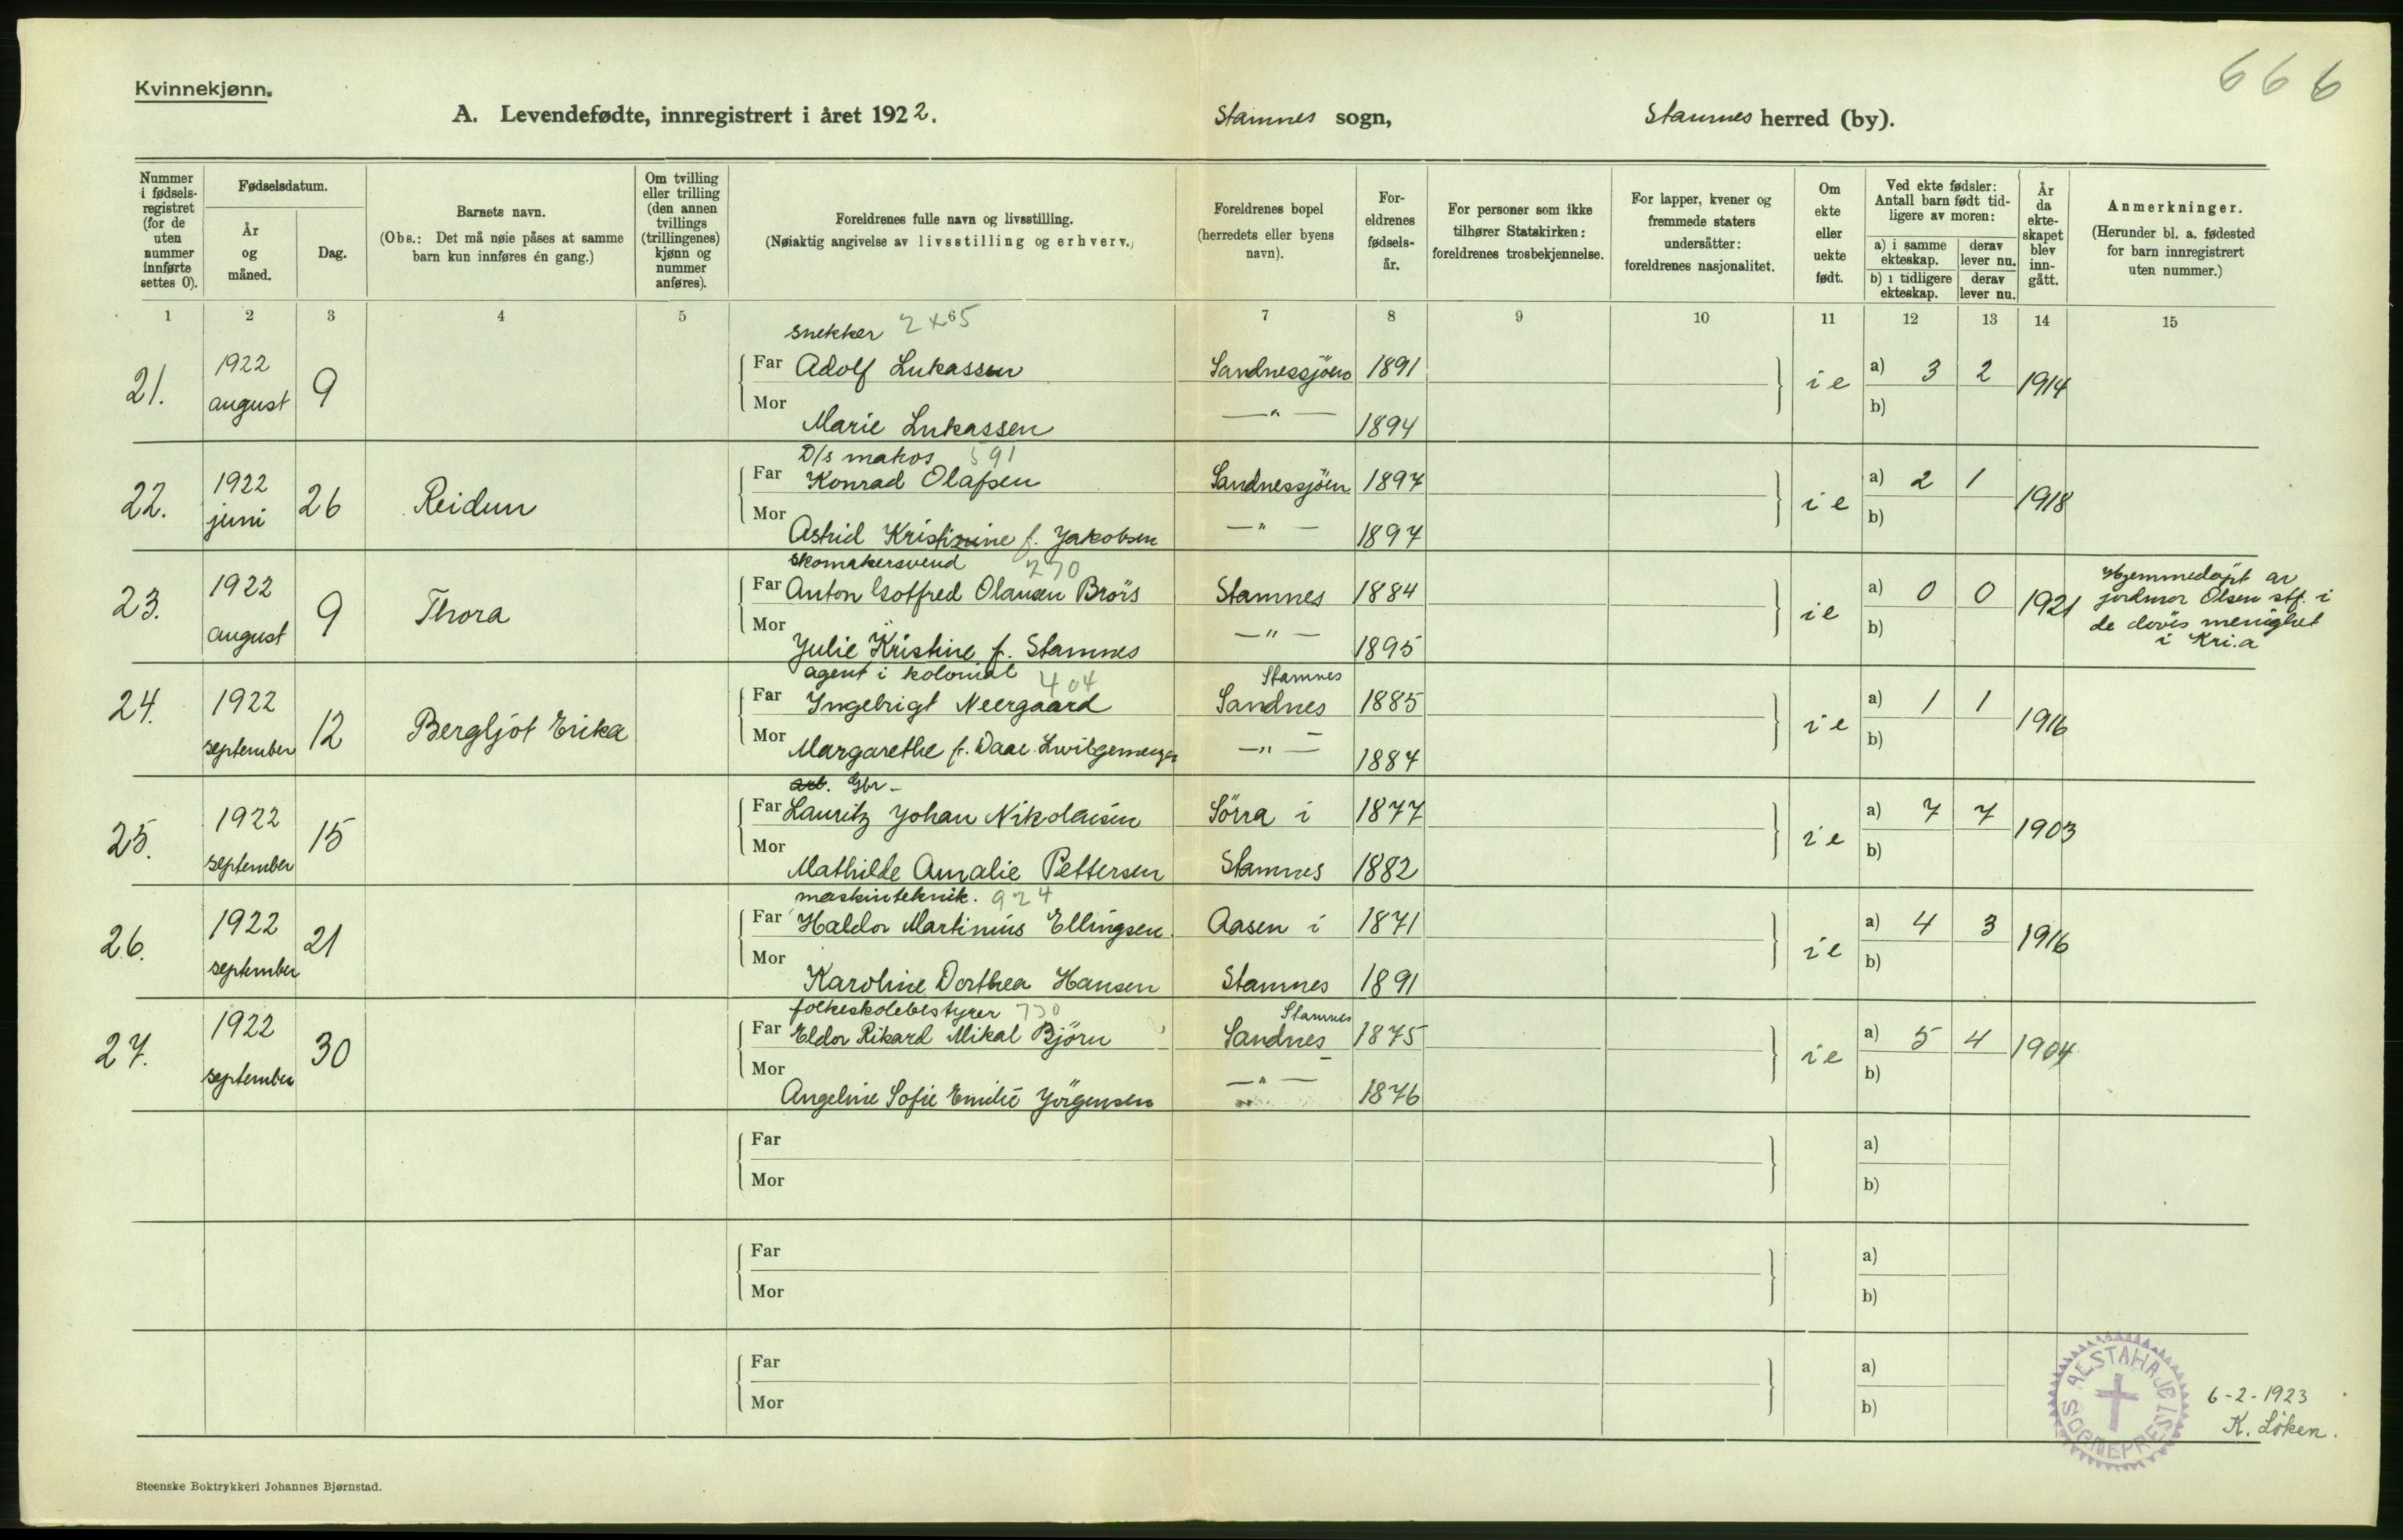 666
Kvinnekjønn.
A. Levendefødte, innregistrert i året 1922. Stamnes sogn, Stamnes herred (by).
Nummer i fødsels-registret (for de uten nummer innførte settes 0).
Fødselsdatum.
År og måned.
Dag.
Barnets navn.
(Obs.: Det må nøie påses at samme barn kun innføres én gang.)
Om tvilling eller trilling (den annen tvillings (trillingenes) kjønn og nummer anføres).
Foreldrenes fulle navn og livsstilling.
(Nøiaktig angivelse av livsstilling og erhverv.)
Foreldrenes bopel (herredets eller byens navn).
For-eldrenes fødsels-år.
For personer som ikke tilhører Statskirken: foreldrenes trosbekjennelse.
For lapper, kvener og fremmede staters undersåtter: foreldrenes nasjonalitet.
Om ekte eller uekte født.
Ved ekte fødsler: Antall barn født tid-ligere av moren:
a) i samme ekteskap. derav lever nu.
b) i tidligere ekteskap. derav lever nu.
År da ekte-skapet blev inn-gått.
Anmerkninger.
(Herunder bl. a. fødested for barn innregistrert uten nummer.)
1 2 3 4 5 6 7 8 9 10 11 12 13 14 15
snekker
21. 1922 august 9 Far Adolf Lukassen Sandnessjöen 1891 i e a) 3 2 1914
Mor Marie Lukassen —"— 1894 b)
D/s matros 591
22. 1922 juni 26 Reidun Far Konrad Olafsen Sandnessjöen 1897 i e a) 2 1 1918
Mor Astrid Kristinine f. Jakobsen —"— 1897 b)
skomakersvend 270
23. 1922 august 9 Thora Far Anton Gotfred Olausen Brörs Stamnes 1884 i e a) 0 0 1921 Hjemmedöpt av jordmor Olsen stf. i de döves menighet i Kri.a
Mor Julie Kristine f. Stamnes —"— 1895 b)
agent i kolonial 404 Stamnes
24. 1922 september 12 Bergljot Erika Far Ingebrigt Neergaard Sandnes 1885 i e a) 1 1 1916
Mor Margarethe f. Daae —"— 1887 b)
arb. Gbr-
25. 1922 september 15 Far Lauritz Johan Nikolaisen Sörra i 1877 i e a) 7 7 1903
Mor Mathilde Amalie Pettersen Stamnes 1882 b)
maskinteknik. 924
26. 1922 september 21 Far Haldor Martinius Ellingsen Aasen i 1871 i e a) 4 3 1916
Mor Karoline Dorthea Hansen Stamnes 1891 b)
folkeskolebestyrer 730 Stamnes
27. 1922 september 30 Far Eldor Rikard Mikal Björn Sandnes 1875 i e a) 5 4 1904
Mor Angeline Sofie Emilie Jörgensen —"— 1876 b)
Far a)
Mor b)
Far a)
Mor b)
Far a)
Mor b)
ALSTAHAUG SOGNEPREST
6-2-1923
K. Löken.
Steenske Boktrykkeri Johannes Bjørnstad.